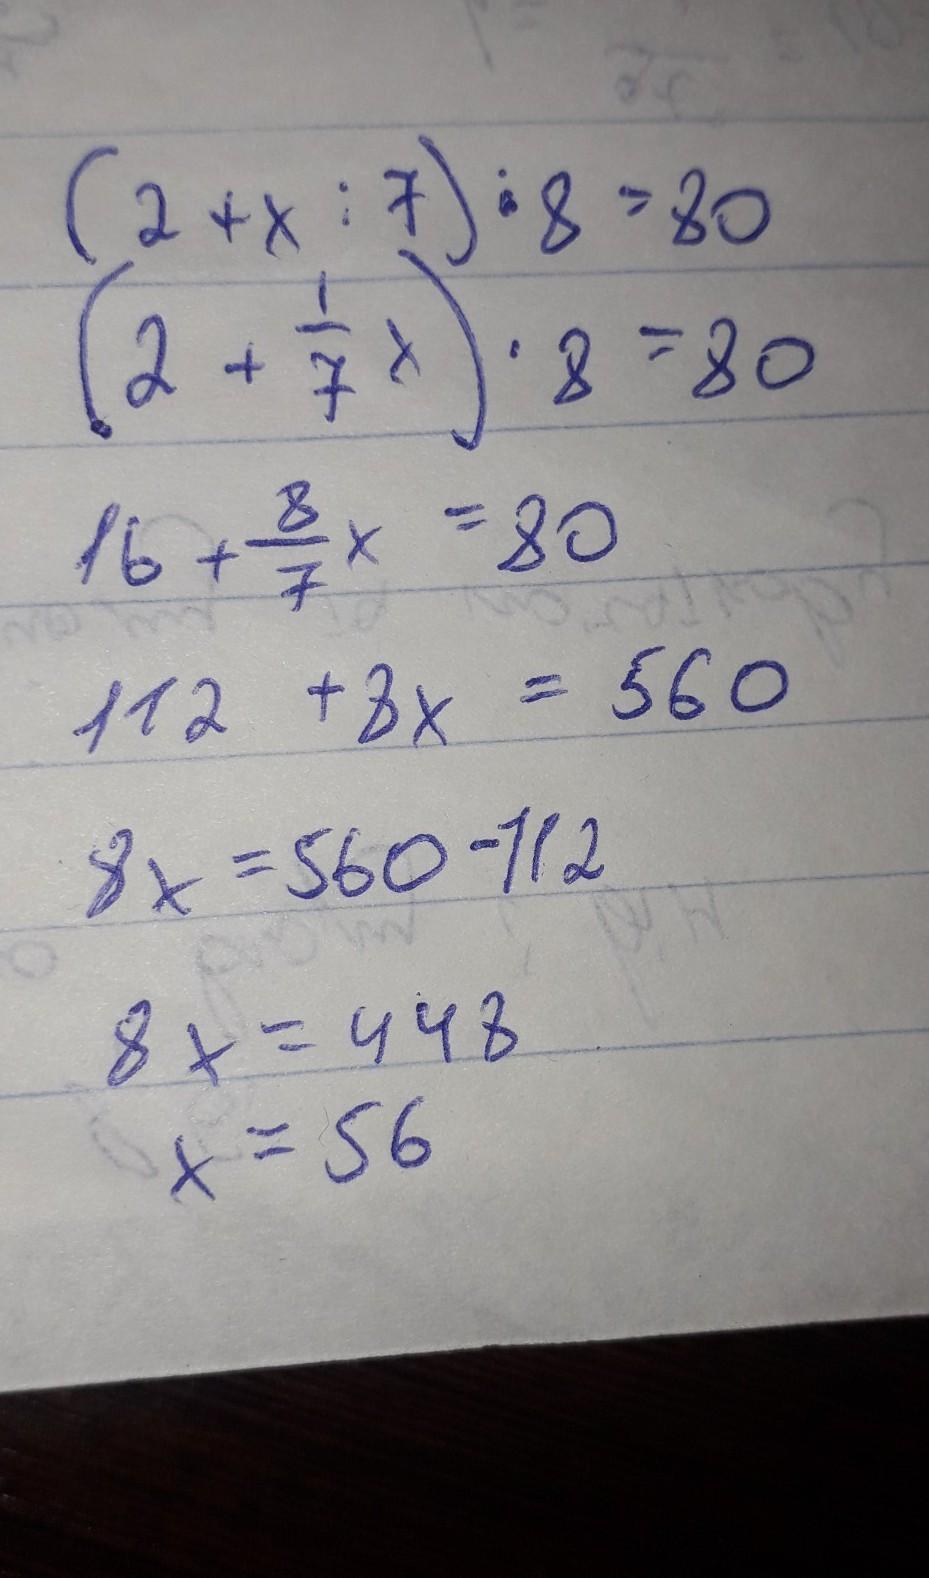 (2 + x : 7) · 8 = 80
(2 + 1/7 x) · 8 = 80
16 + 8/7 x = 80
112 + 8x = 560
8x = 560 - 112
8x = 448
x = 56